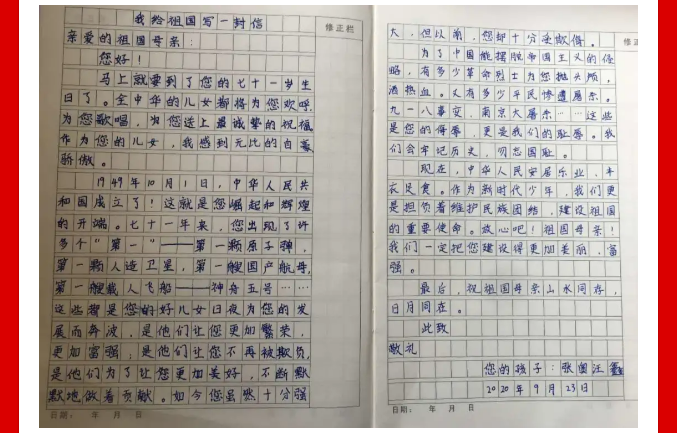 我给祖国写一封信
修正栏
亲爱的祖国母亲：
您好！
马上就要到了您的七十一岁生
日了。全中华的儿女都将为您欢呼，
为您歌唱，为您送上最诚挚的祝福
作为您的儿女，我感到无比的自豪
骄傲。
1949年10月1日，中华人民共
和国成立了！这就是您崛起和辉煌
的开端。七十一年来，您出现了许
多个“第一”——第一颗原子弹，
第一颗人造卫星，第一艘国产航母，
第一艘载人飞船——神舟五号……
这些都是您的好儿女日夜为您的发
展而奔波，是他们让您更加繁荣，
更加富强；是他们让您不再被欺负，
是他们为了让您更加美好，不断默
默地做着贡献。如今您虽然十分强
日期： 年 月 日
大，但以前，您却十分受欺侮。
修正
为了中国能摆脱帝国主义的侵
略，有多少革命烈士为您抛头颅，
洒热血。又有多少平民惨遭屠杀。
九一八事变，南京大屠杀……这些
是您的侮辱，更是我们的耻辱。我
们会牢记历史，勿忘国耻。
现在，中华人民安居乐业，丰
衣足食。作为新时代少年，我们更
是担负着维护民族团结，建设祖国
的重要使命。放心吧！祖国母亲！
我们一定把您建设得更加美丽，富
强。
最后，祝祖国母亲山水同存，
日月同在。
此致
敬礼
您的孩子：张
2020年9月23日
日期： 年 月 日